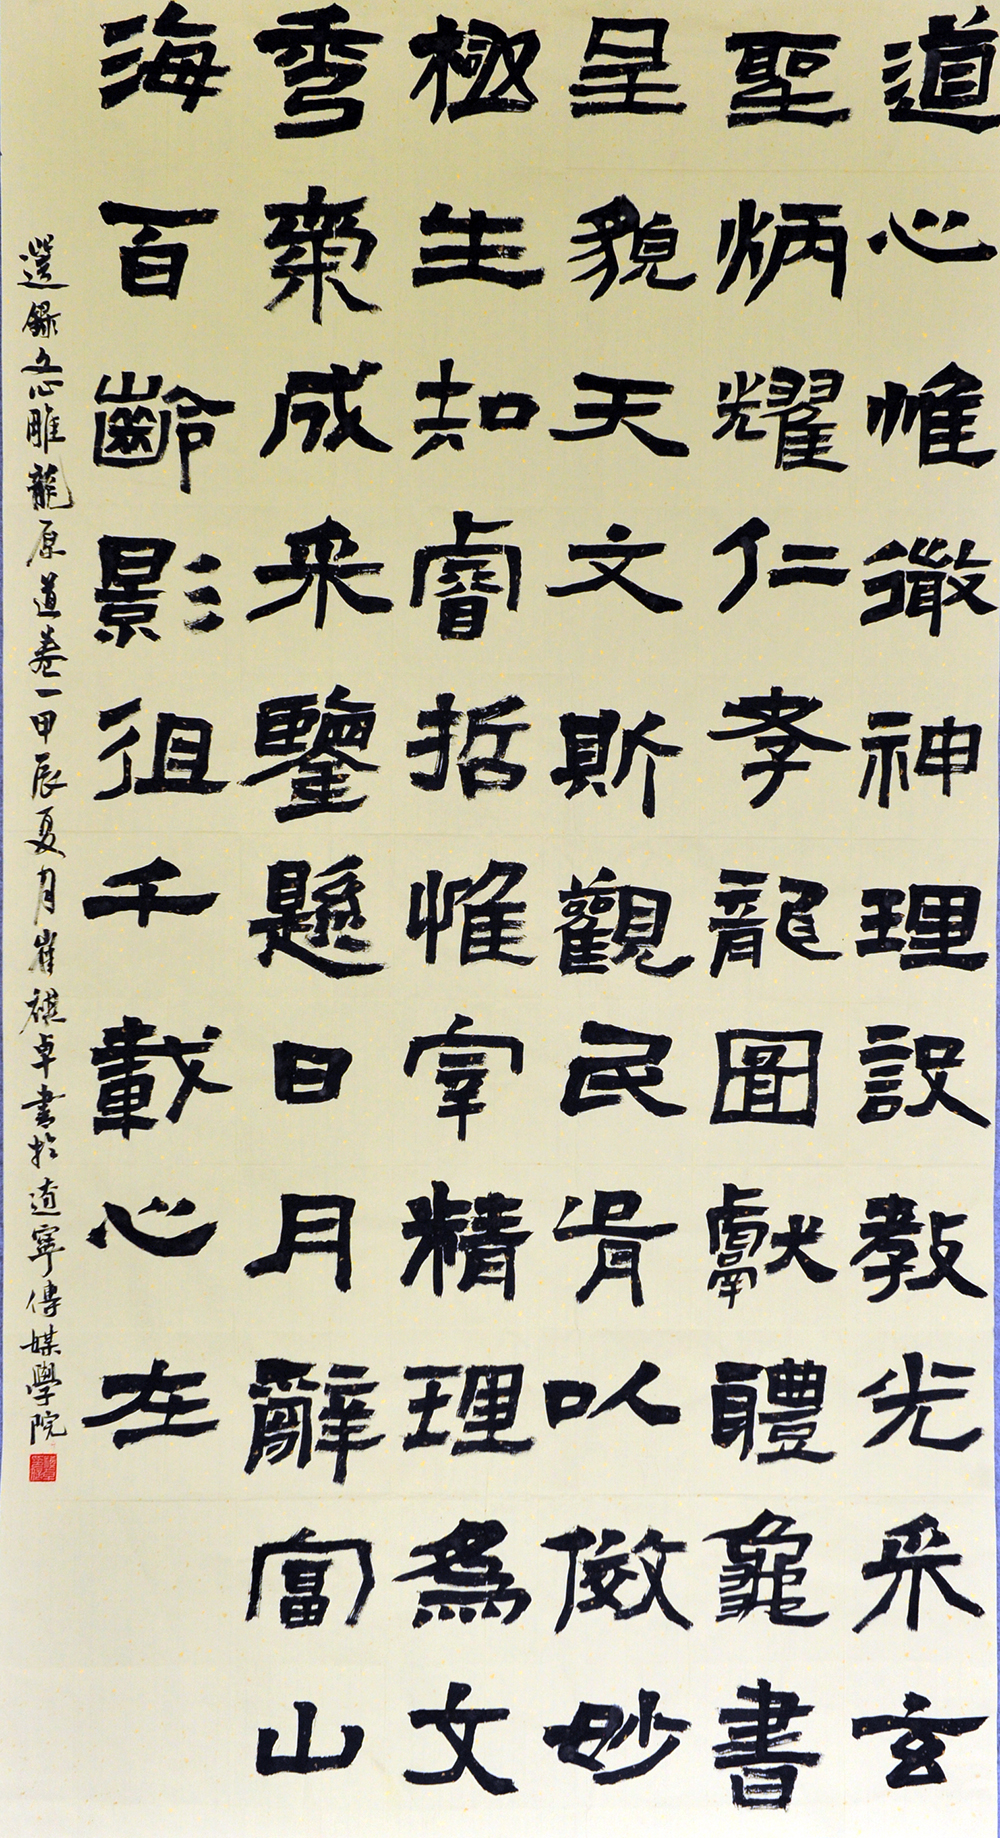 道心惟微神理設教光采玄
聖炳耀仁孝龍圖獻體龜書
呈貌天文斯觀民胥以傚妙
極生知睿哲惟宰精理為文
秀氣成采鑒懸日月辭富山
海百齡影徂千載心在
選錄文心雕龍原道卷一甲辰夏月崔祺卓書於遼寧傳媒學院